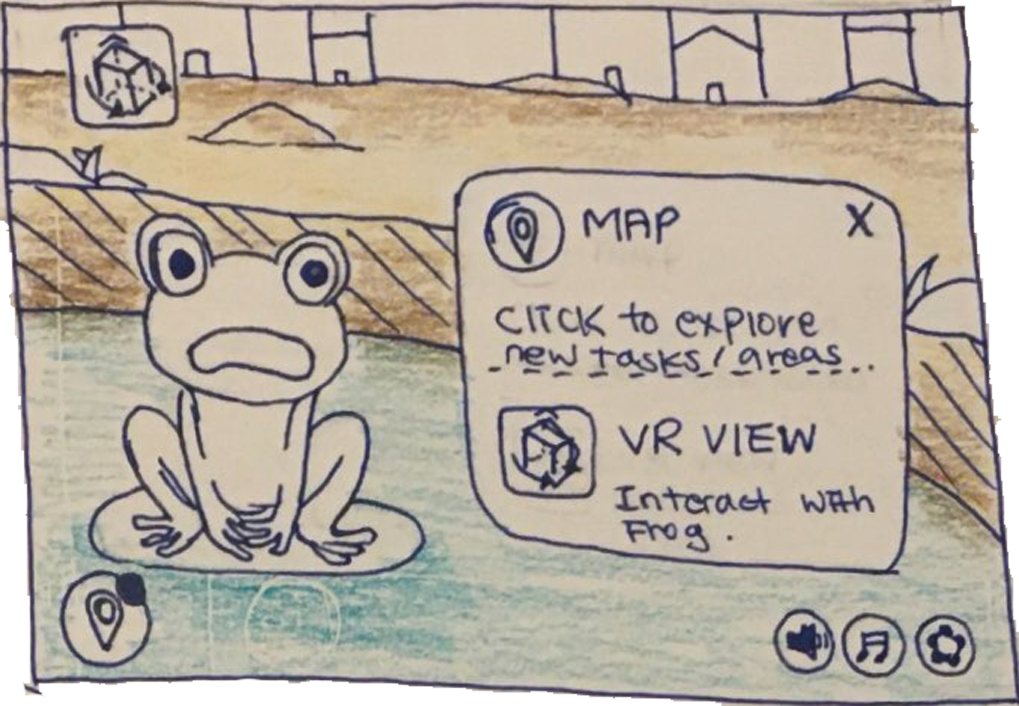 MAP X
CLICK to explore
new tasks/areas...
VR VIEW
Interact with
Frog.